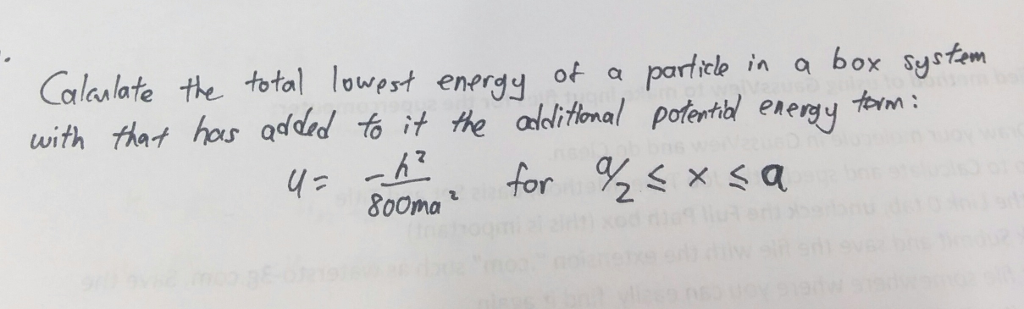 Calculate the total lowest energy of a particle in a box system
with that has added to it the additional potential energy term:
U = -h²/800ma² for a/2 ≤ x ≤ a